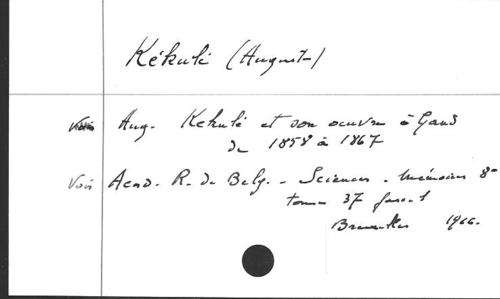 Kékulé (August)
Voir Aug. Kekulé et son œuvre à Gand
de 1858 à 1867
Voir Acad. R. de Belg. - Sciences - Mémoires 8°
tome 37 fasc. 1
Bruxelles 1966.